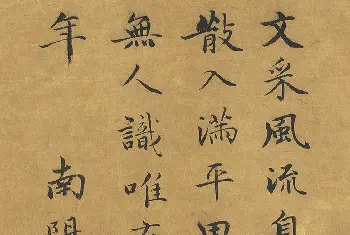 文采風流自
散入滿平田
無人識唯有
年 南陽